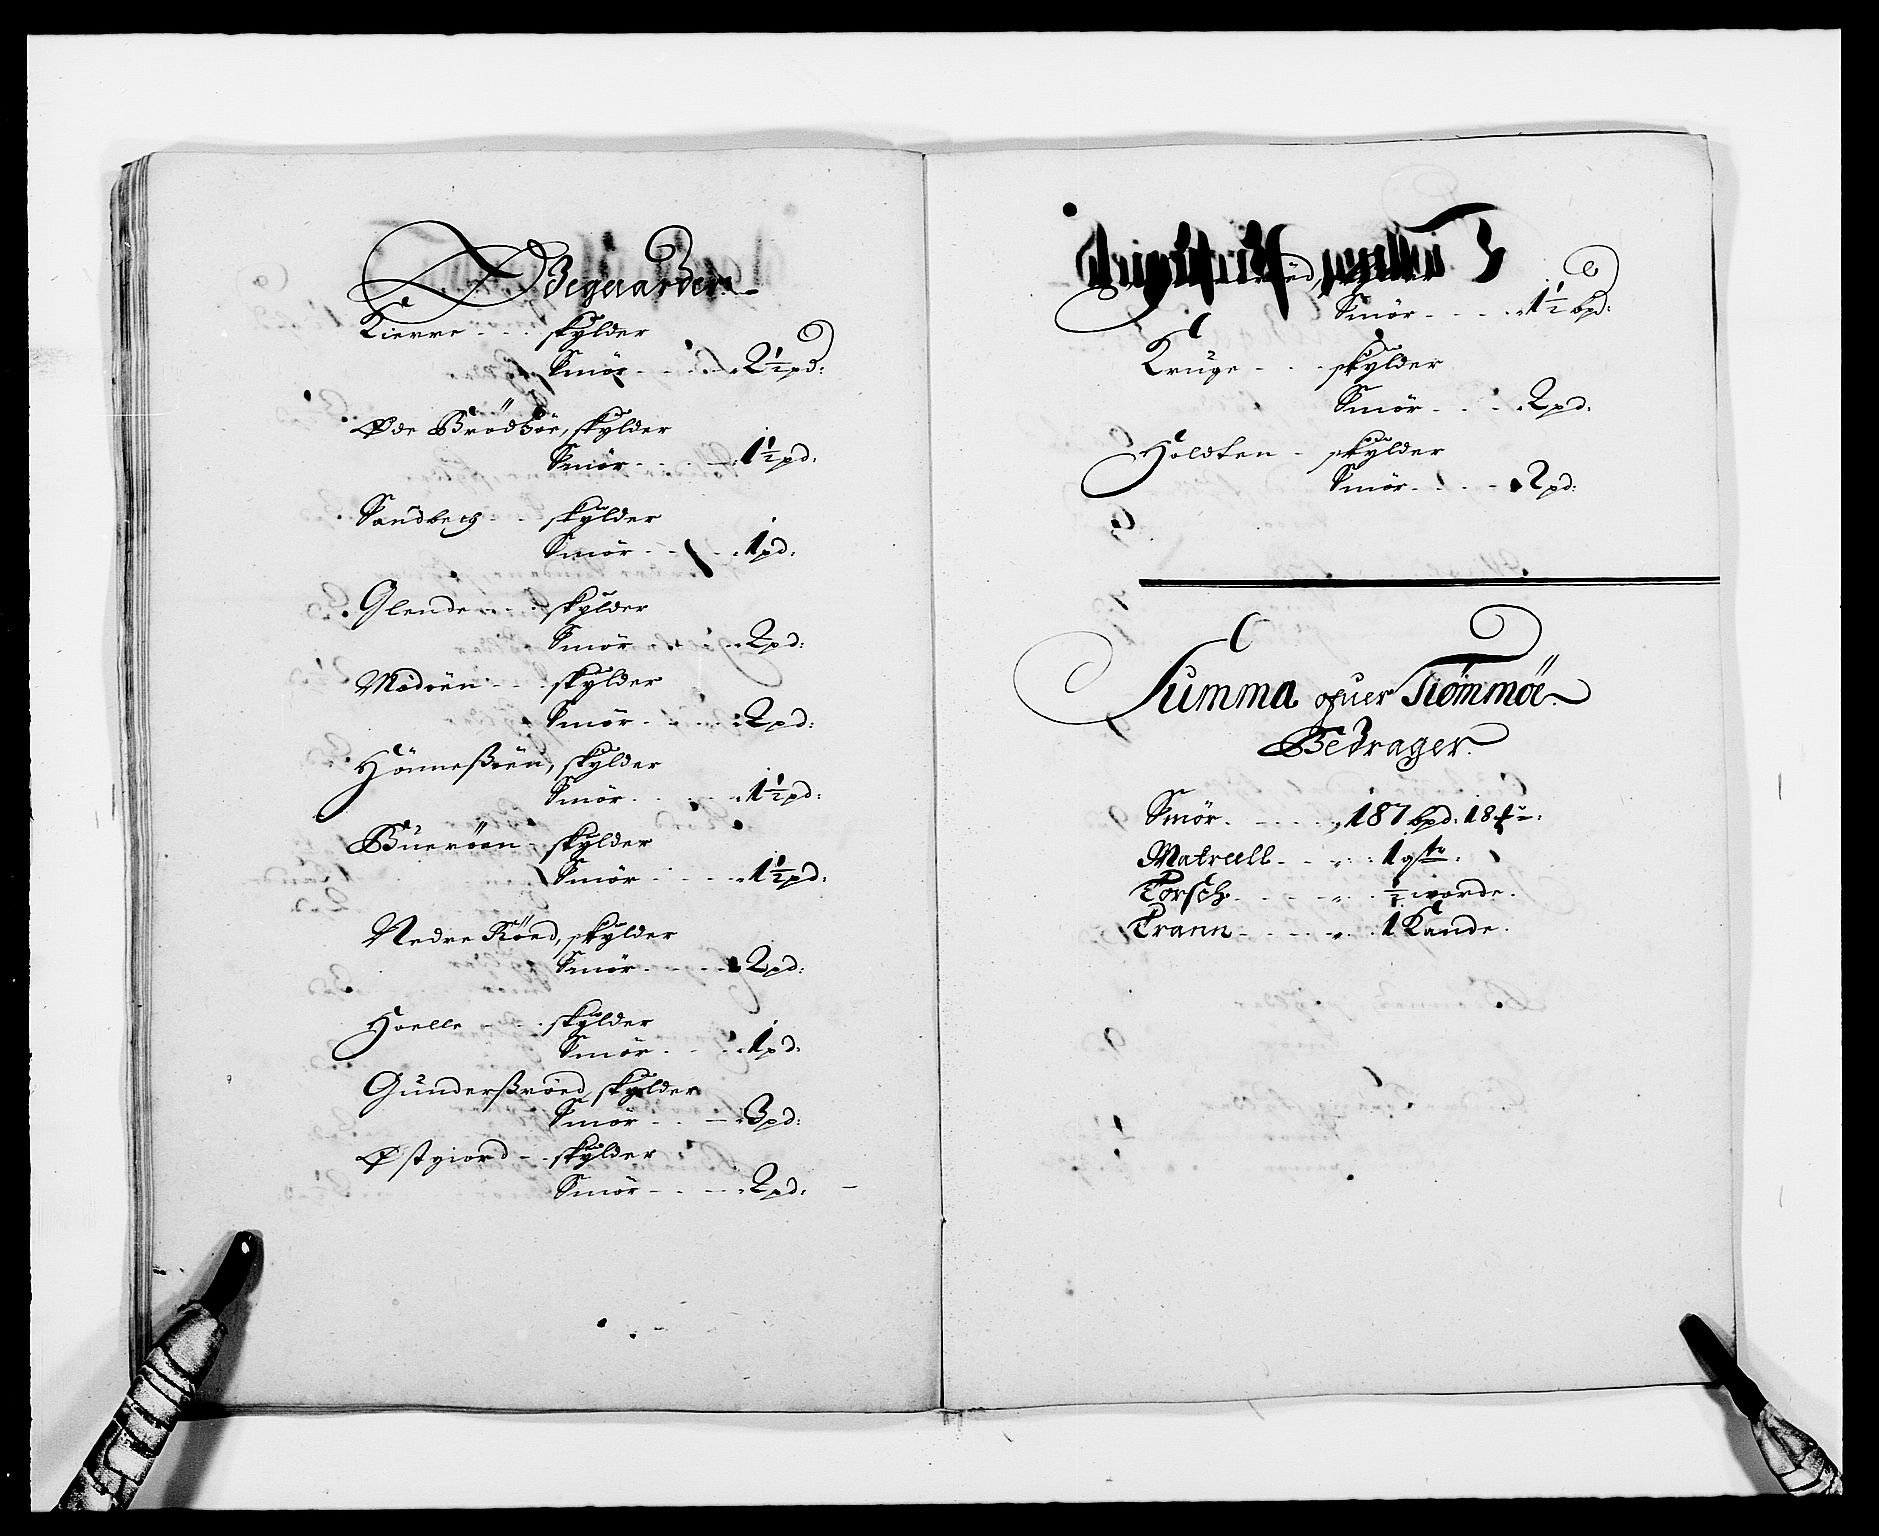 Ødegaarder
Kierre - - - skylder
Smør - - - 2½ pd:
Øde Brödböe, skylder
Smör - - - 1½ pd:
Sandbech - - skylder
Smör - - - 1 pd:
Glende - - - skylder
Smör - - - 2 pd:
Mödöen - - - skylder
Smör - - - 2 pd:
Hönneßöen, skylder
Smör - - - 1½ pd:
Büeröen - skylder
Smör - - - 1½ pd:
Nedre Röed, skylder
Smör - - - 2 pd:
Hoelle - - - skylder
Smör - - - 1 pd:
Günderßröed, skylder
Smör - - - 3 pd:
Østgiord - - skylder
Smör - - - 2 pd:
Smör - - - 1½ bpd:
Krüge - - - skylder
Smör - - - 2 pd:
Holdten - skylder
Smör - - - 2 pd:
Summa ofuer Tiømmöe
Bedrager
Smör - - - 187 bpd: 18
Matrell - - - 1
Torsch - - - ½ worde.
Trann - - - 1 Kande.